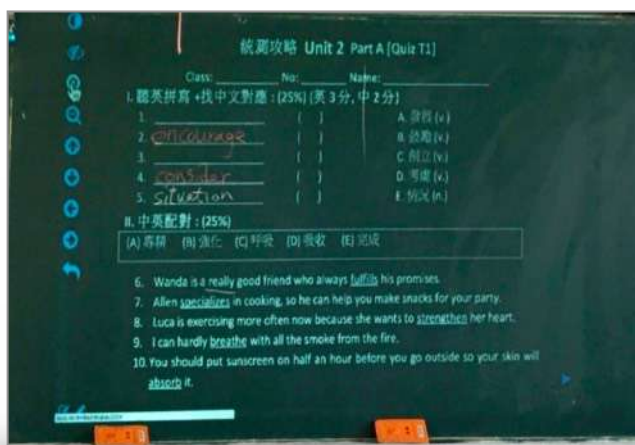 統測攻略 Unit 2 Part A [Quiz T1]
Class: ________ No: ______ Name: ____________
I. 聽英拼寫 +找中文對應 : (25%) (英 3 分, 中 2 分)
1. ____________ ( ) A. (v.)
2. encourage ( ) B. 鼓勵 (v.)
3. ____________ ( ) C. 創立 (v.)
4. consider ( ) D. 考慮 (v.)
5. situation ( ) E. 情況 (n.)
II. 中英配對 : (25%)
(A) 專精 (B) 強化 (C) 呼吸 (D) 吸收 (E) 完成
6. Wanda is a really good friend who always fulfills his promises.
7. Allen specializes in cooking, so he can help you make snacks for your party.
8. Luca is exercising more often now because she wants to strengthen her heart.
9. I can hardly breathe with all the smoke from the fire.
10. You should put sunscreen on half an hour before you go outside so your skin will
absorb it.